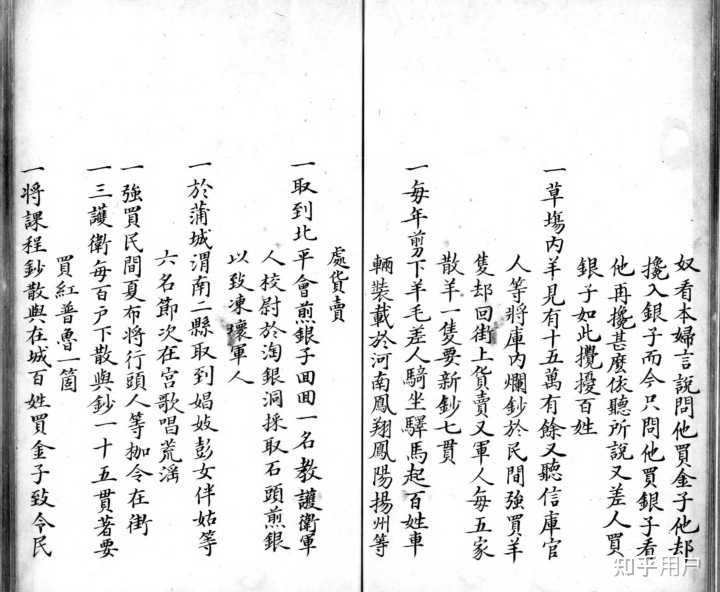 奴看本婦言說問他買金子他却
攙入銀子而今只問他買銀子看
他再攙甚麽依聽所說又差人買
銀子如此攪擾百姓
一草塲內羊見有十五萬有餘又聽信庫官
人等將庫內爛鈔於民間強買羊
隻却回街上貨賣又軍人每五家
散羊一隻要新鈔七貫
一每年剪下羊毛差人騎坐驛馬起百姓車
輛裝載於河南鳳翔鳳陽揚州等
處貨賣
一取到北平會煎銀子回回一名教護衛軍
人校尉於淘銀洞採取石頭煎銀
以致凍壞軍人
一於蒲城渭南二縣取到娼妓彭女伴姑等
六名節次在宮歌唱荒滛
一強買民間夏布將行頭人等枷令在街
一三護衛每百户下散與鈔一十五貫著要
買紅普魯一箇
一將課程鈔散與在城百姓買金子致令民
知乎用户